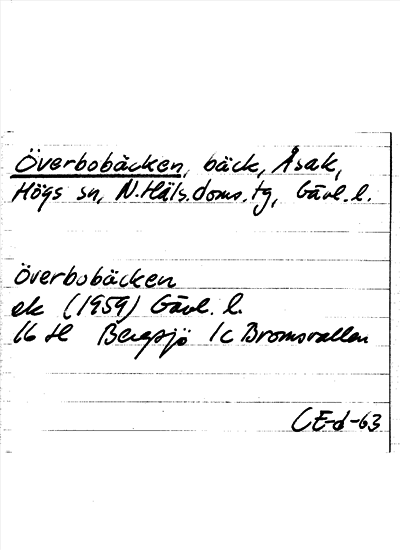 Överbobäcken, bäck, Åsak,
Högs sn, N.Häls.doms.tg, Gävl.l.
Överbobäcken
ek (1959) Gävl. l.
16 H Bergsjö 1c Bromsvallen
CE-d-63